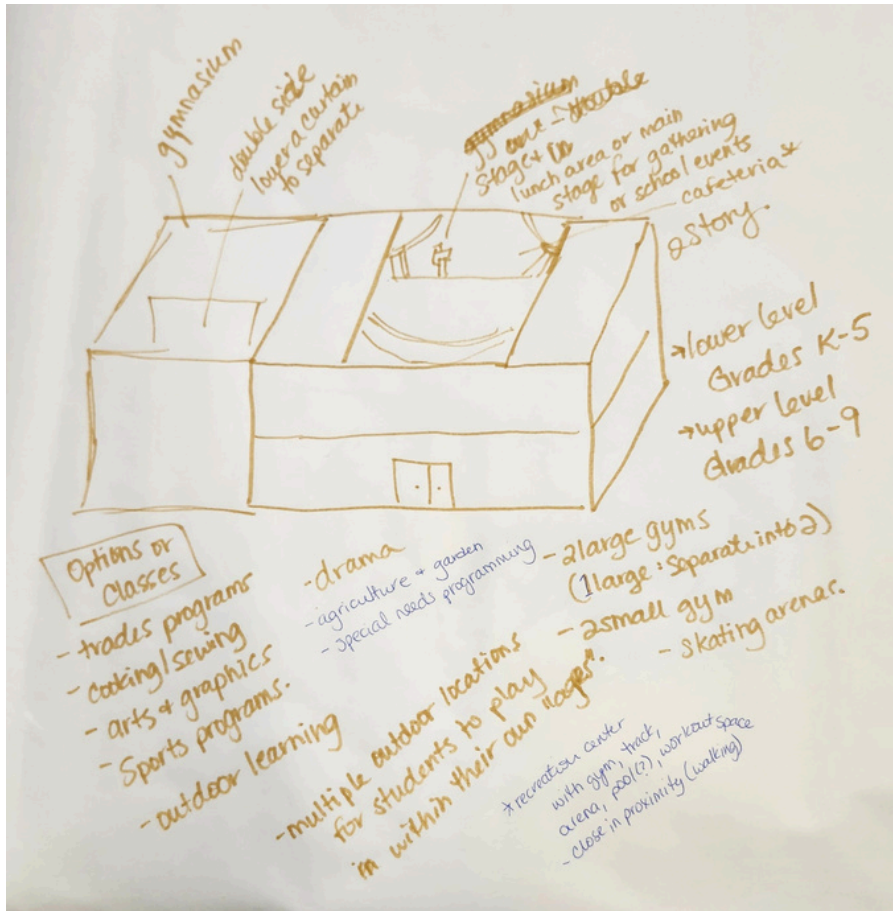 gymnasium
double side
lower a curtain
to separate
stage + in
lunch area or main
stage for gathering
or school events
cafeteria*
2 story.
→ lower level
Grades K-5
→ upper level
Grades 6-9
Options or
Classes
- trades programs
- cooking/sewing
- arts + graphics
- Sports programs.
- outdoor learning
- drama
- agriculture + garden
- special needs programming
- multiple outdoor locations
for students to play
in within their own "ages".
- 2 large gyms
(1 large: separate into 2)
- 2 small gym
- skating arenas.
* recreation center
with gym, track,
arena, pool(?), workout space
- close in proximity (walking)